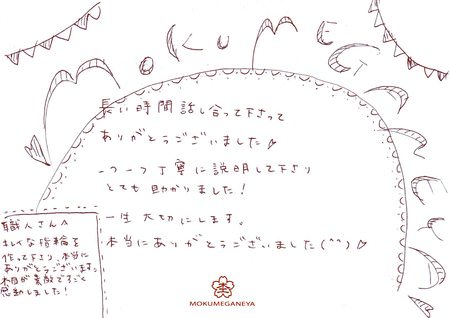 MOKUMEGANEYA
長い時間話し合って下さって
ありがとうございました♪
一つ一つ丁寧に説明して下さり
とても助かりました!
一生大切にします。
本当にありがとうございました(^^)♪
職人さんへ
キレイな指輪を
作って下さり、本当に
ありがとうございます。
木目が素敵ですごく
感動しました!
MOKUMEGANEYA